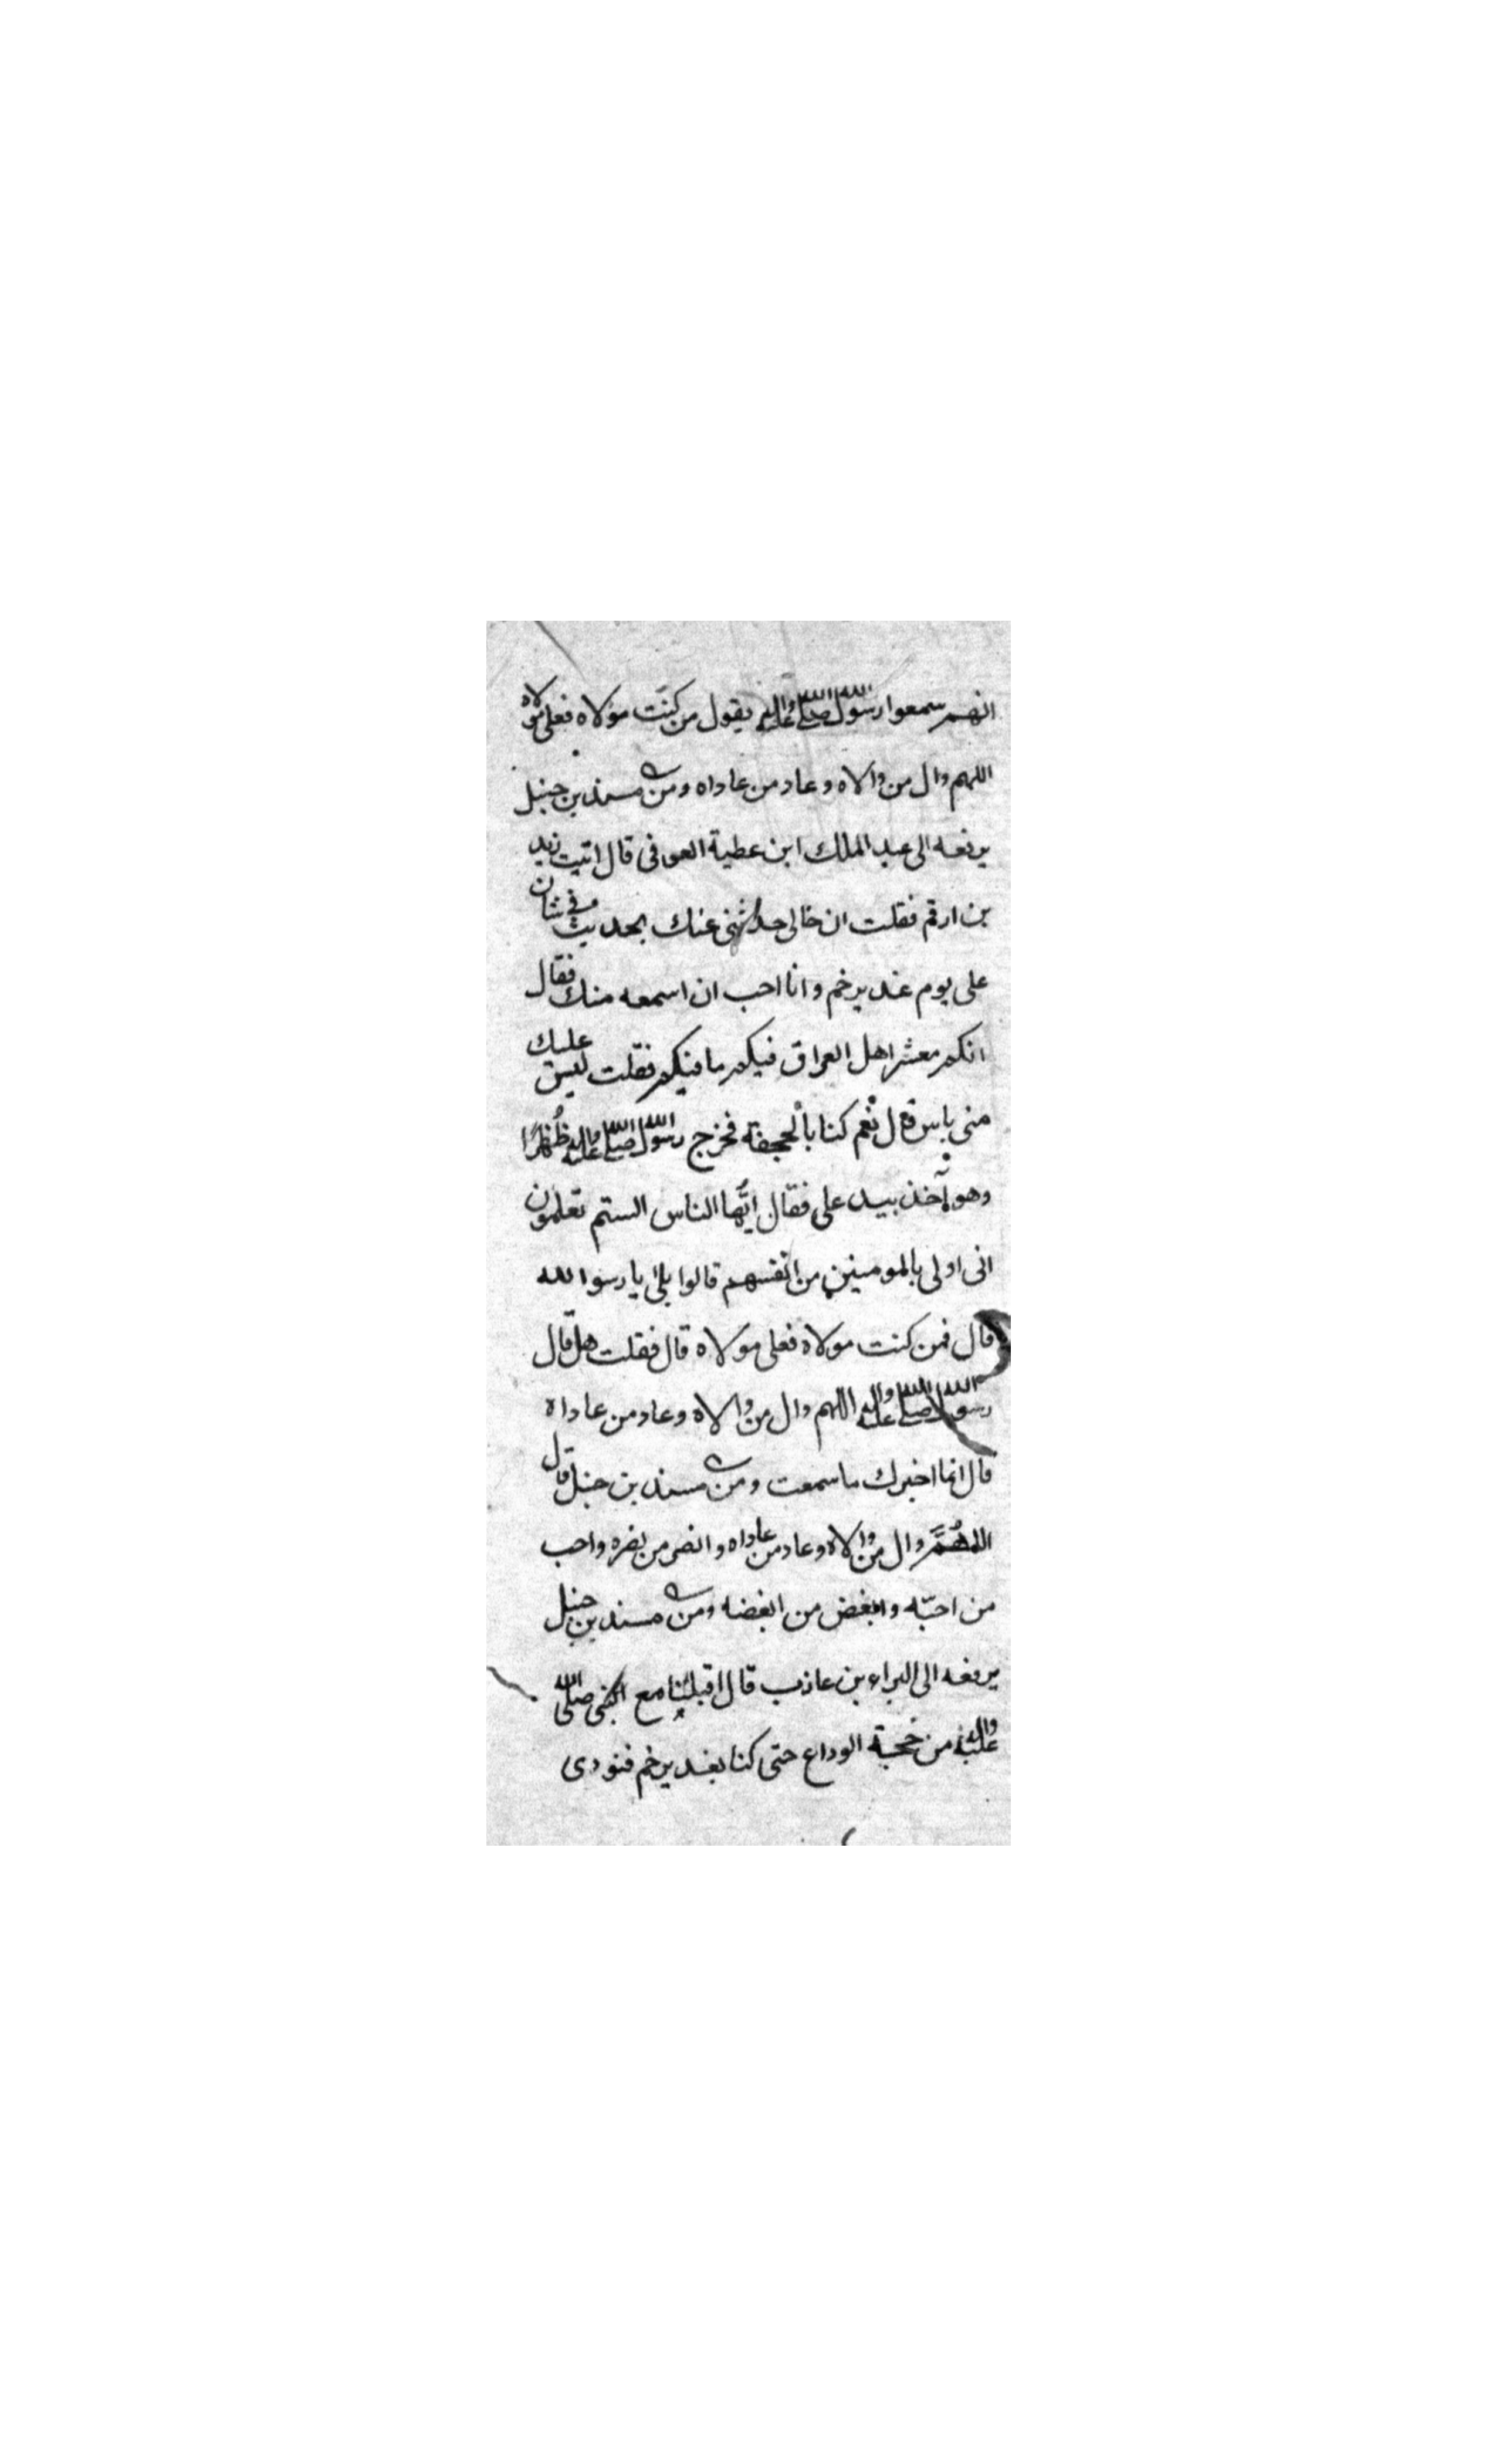 انهم سمعوا رسول الله صلى الله عليه واله يقول من كنت مولاه فعلى مولاه
اللهم وال من والاه وعاد من عاداه ومن مسند بن حنبل
يرفعه الى عبد الملك ابن عطية العوفى قال اتيت زيد
بن ارقم فقلت ان خالى حدثنى عنك بحديث فى شان
على يوم غدير خم وانا احب ان اسمعه منك فقال
انكم معشر اهل العراق فيكم ما فيكم فقلت ليس عليك
منى باس قال نعم كنا بالجحفة فخرج رسول الله صلى الله عليه واله ظُهْرًا
وهو آخذ بيد على فقال ايّها الناس الستم تعلمون
انى اولى بالمومنين من انفسهم قالوا بلى يا رسول الله
قال فمن كنت مولاه فعلى مولاه قال فقلت هل قال
رسول الله صلى الله عليه واله اللهم وال من والاه وعاد من عاداه
قال انما اخبرك ما سمعت ومن مسند بن حنبل قال
اللهُمَّ وال من والاه وعاد من عاداه وانصر من نصره واحب
من احبّه وابغض من ابغضه ومن مسند بن حنبل
يرفعه الى البراء بن عازب قال اقبلنا مع النبى صلى الله
عليه واله من حجة الوداع حتى كنا بغدير خم فنودى